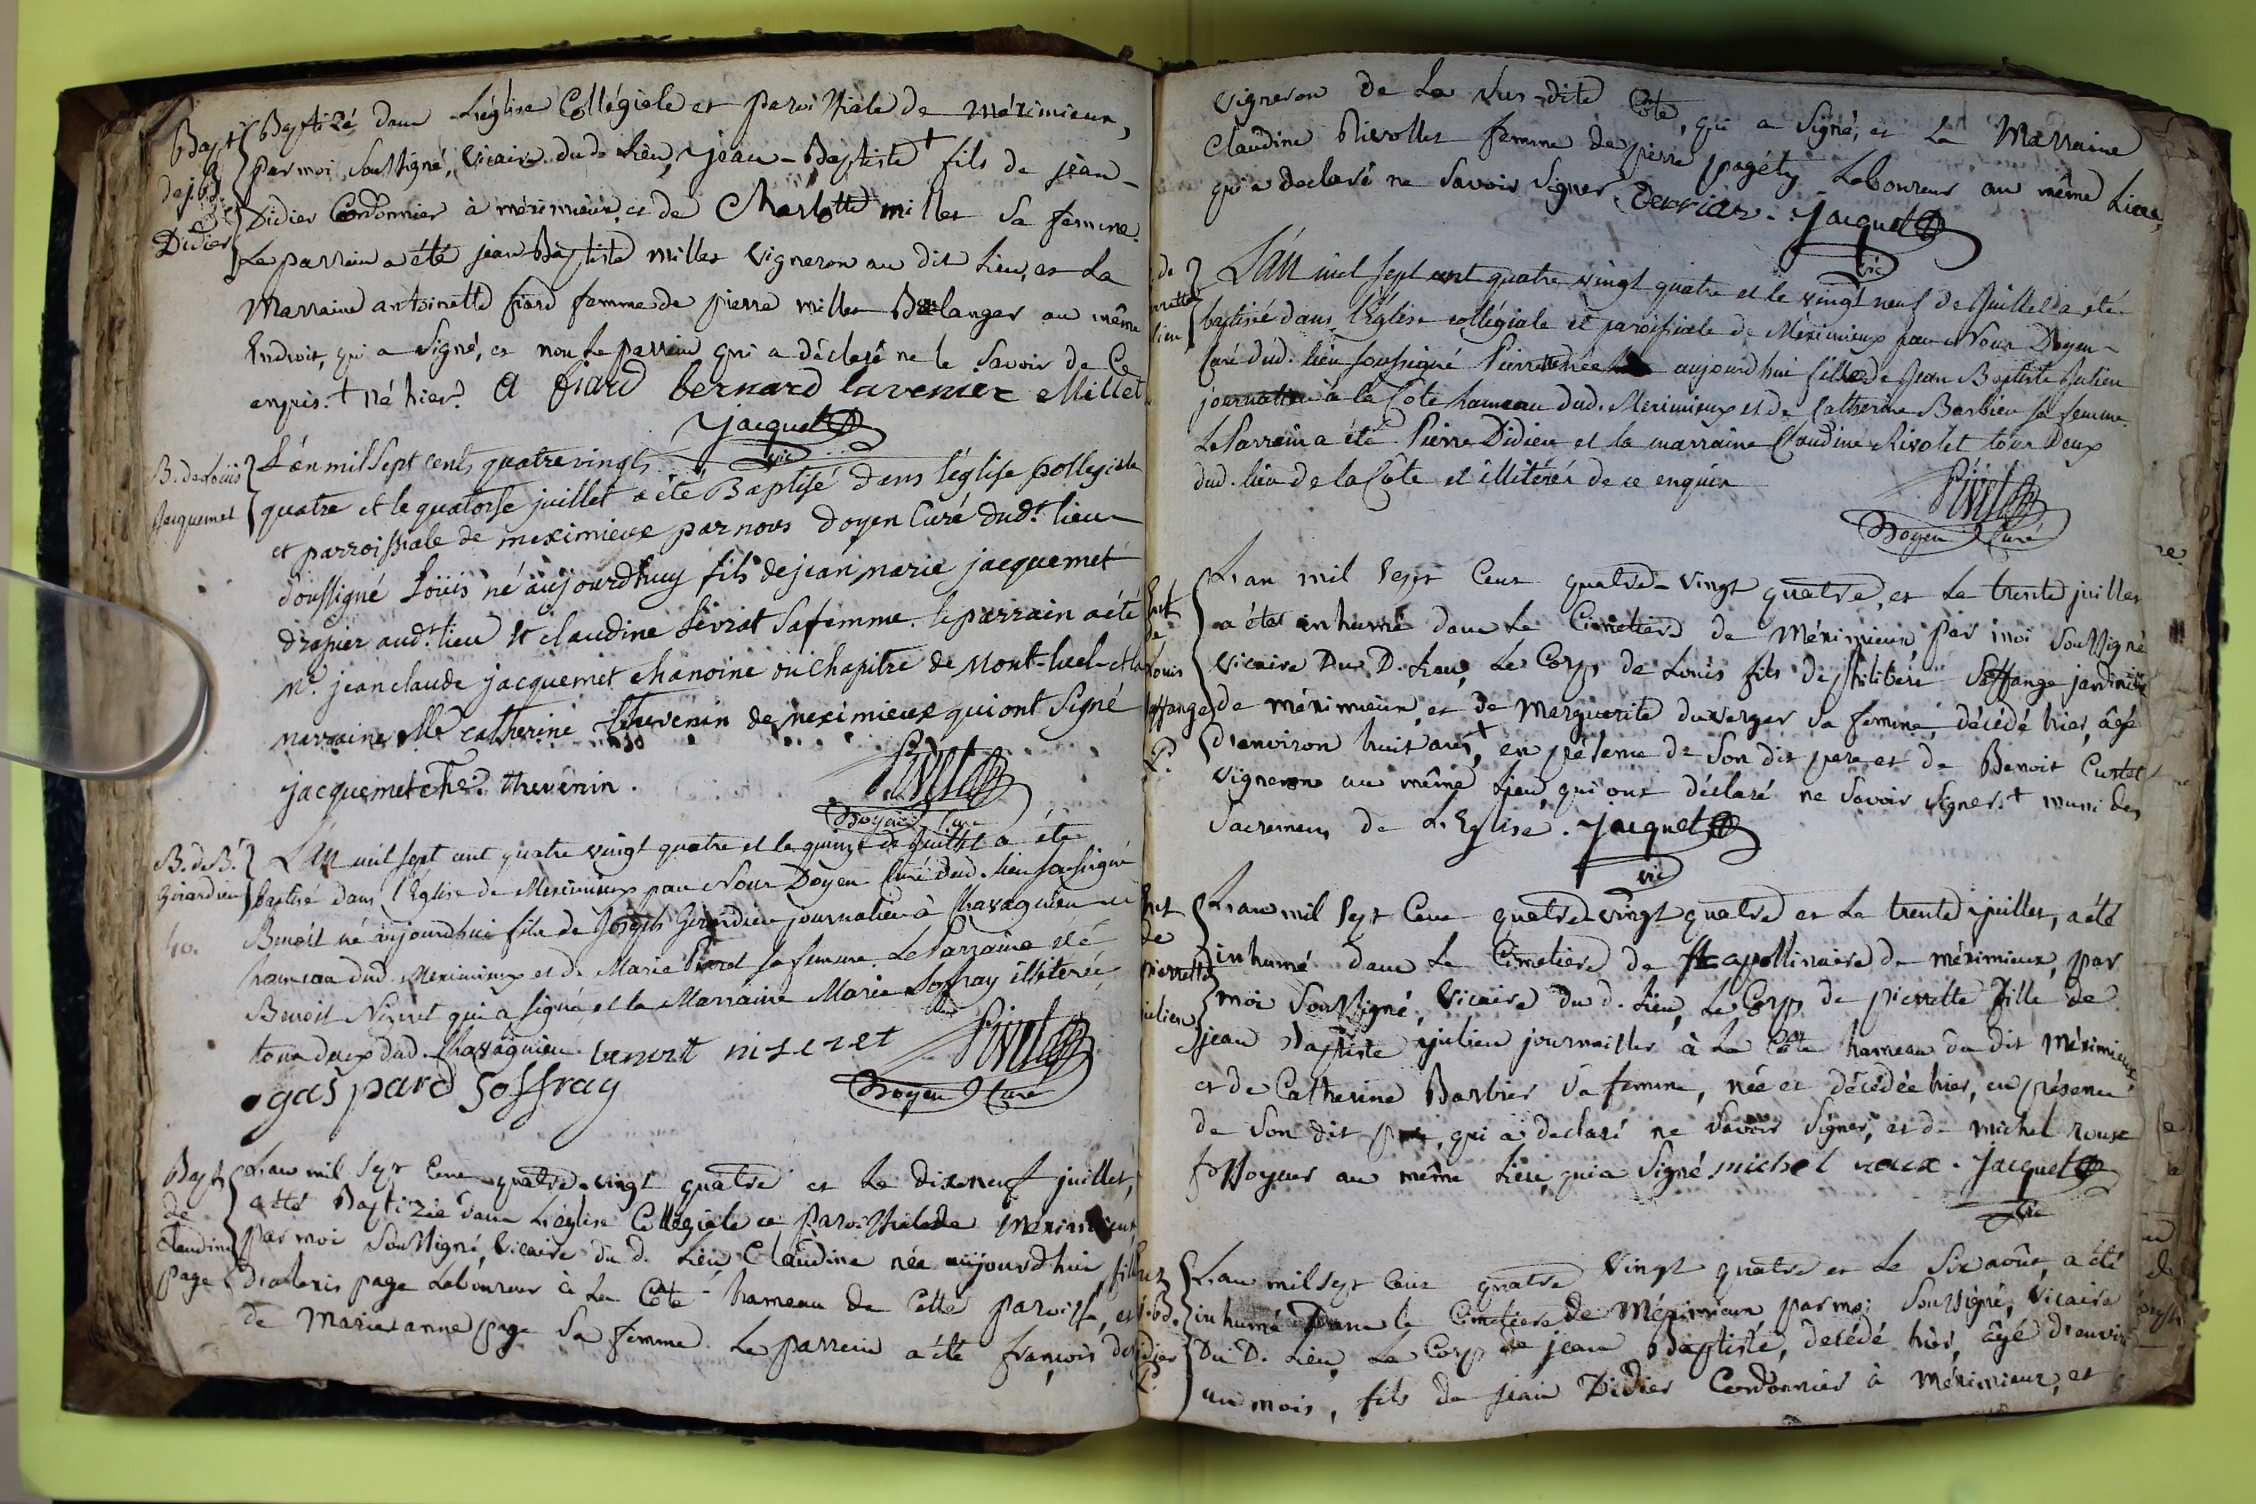 Bapt. Baptizé dans L'église Collégiale et paroissiale de méximieux,
de j. b. par moi soussigné, vicaire dud. Lieu, jean-Baptiste + fils de jean-
Didier Didier Cordonnier à méximieux, et de Charlotte millet sa femme.
Le parrain a été jean Baptiste millet vigneron au dit Lieu, et La
Marraine antoinette fiard femme de pierre millet Boulanger au même
Endroit, qui a signé, et non Le parrain qui a déclaré ne le savoir de Ce
enquis. + né hier. A fiard bernard lavenier Millet
jacquet
vic
B. de Loüis L'an mil sept cents quatrevingts
jacquemet quatre et le quatorse juillet a été Baptisé dans l'église collegiale
et parroissiale de meximieux par nous doyen Curé dudt. lieu
soussigné Loüis né aujourdhuy fils de jean marie jacquemet
drapier audt. lieu et claudine sevrat sa femme. le parrain a été
Mr. jean claude jacquemet chanoine du chapitre de Mont-luel et la
marraine Mlle catherine thevenin de meximieux qui ont signé
jacquemet che. thevenin.
Doyen Curé
B. de B. L'an mil sept cent quatre vingt quatre et le quinze de Juillet a été
Girardieu baptisé dans l'Eglise de Meximieux par Nous Doyen Curé dud. lieu soussigné
40. Benoit né aujourdhui fils de Joseph Girardieu journalier à Chavagnieu
hameau dud. Meximieux et de Marie sa femme. Le Parrain a été
Benoit Niseret qui a signé et la Marraine Marie Soffray illitérée,
tous deux dud. Chavagnieu. benoit niseret
gaspard Soffray
Doyen Curé
Bapt. L'an mil sept Cent quatre-vingt quatre et Le dix neuf juillet,
de a été Baptizée dans L'église Collégiale et paroissiale de méximieux,
Claudine par moi soussigné, vicaire du d. Lieu, Claudine née aujourdhui, fille
page d'alexis page Laboureur à La Côte hameau de Cette paroisse, et
de Marie anne page sa femme. Le parrein a été françois
vigneron de La sus-dite Côte, qui a signé, et La Marraine
Claudine Rivollet femme de pierre pagéty Laboureur au même Lieu,
qui a déclaré ne savoir signer. jacquet
vic
de L'an mil sept cent quatre vingt quatre et le vingt neuf de Juillet a été
baptisé dans l'Eglise collégiale et paroissiale de Méximieux par Nous Doyen-
Curé dud. lieu soussigné Pierrette née aujourdhui fille de Jean Baptiste Julien
journalier à la Cote hameau dud. Meximieux et de Catherine Barbier sa femme.
Le Parrain a été Pierre Didier et la marraine Claudine Rivolet tous deux
dud. lieu de la Côte et illitérés de ce enquis
Doyen Curé
Ent. L'an mil sept Cent quatre-vingt quatre, et Le trente juillet
de a été inhumé dans Le Cimetiere de Méximieux, par moi soussigné
Louis vicaire Du D. Lieu, Le Corps de Louis fils de philibert Saffange jardinier
Saffange de méximieux, et de Marguerite duverger sa femme, décédé hier, âgé
d'environ huit ans +, en présence de son dit pere et de Benoit Curtet
vigneron au même Lieu, qui ont déclaré ne savoir signer. + muni des
sacremens de L'Eglise. jacquet
vic
Ent. L'an mil sept Cent quatre-vingt quatre et Le trente juillet, a été
de inhumé dans Le Cimetiere de St apollinaire de méximieux, par
pierrette moi soussigné, vicaire du d. Lieu, Le Corps de pierrette fille de
julien jean Baptiste julien journaillier à La Côte hameau du dit Méximieux,
et de Catherine Barbier sa femme, née et décédée hier, en présence
de son dit pere, qui a déclaré ne savoir signer, et de michel roux
fossoyeur au même Lieu, qui a signé. michel roux. jacquet
vic
L'an mil sept Cent quatre vingt quatre et Le six août, a été
inhumé Dans le Cimetiere de Méximieux par moi soussigné, vicaire
Du D. Lieu, Le Corps de jean Baptiste, décédé hier, âgé d'environ
un mois, fils de jean Didier Cordonnier à Méximieux, et